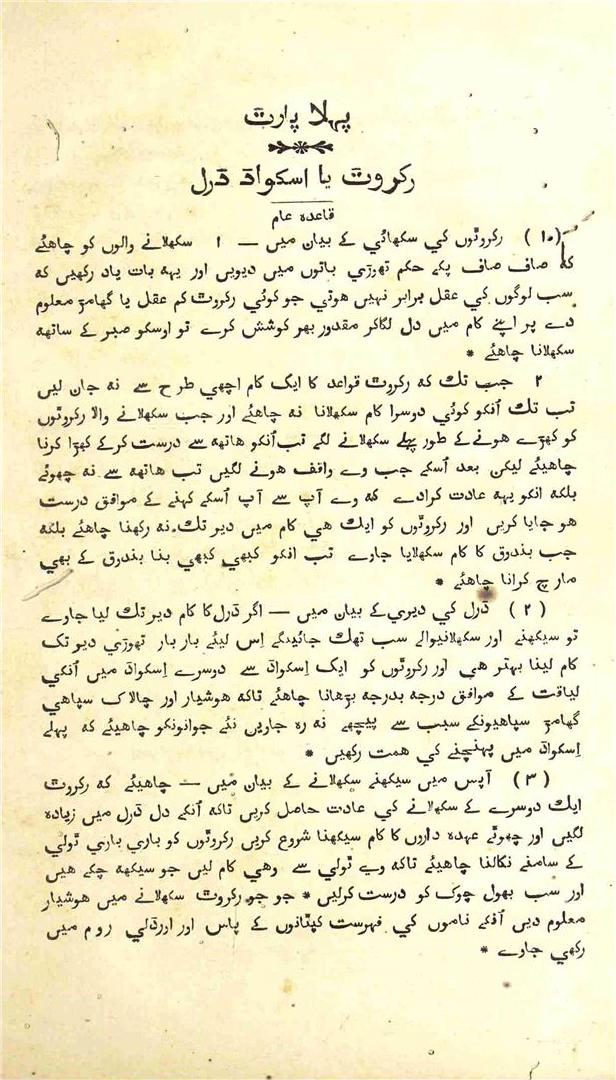 پہلا پارٹ
رکروٹ یا اسکواڈ ڈرل
قاعدہ عام
(۱۰) رکروٹوں کي سکھائي کے بیان میں — ۱ سکھلانے والوں کو چاھئے
کہ صاف صاف پکے حکم تھوڑي باتوں میں دیویں اور یہہ بات یاد رکھیں کہ
سب لوگوں کي عقل برابر نہیں ھوتي جو کوئي رکروٹ کم عقل یا گھامڑ معلوم
دے پر اپنے کام میں دل لگاکر مقدور بھر کوشش کرے تو اوسکو صبر کے ساتھہ
سکھلانا چاھئے *
۲ جب تك کہ رکروٹ قواعد کا ایک کام اچھي طرح سے نہ جان لیں
تب تك اُنکو کوئي دوسرا کام سکھلانا نہ چاھئے اور جب سکھلانے والا رکروٹوں
کو کھڑے ھونے کے طور پہلے سکھلانے لگے تب اُنکو ھاتھہ سے درست کرکے کھڑا کرنا
چاھیئے لیکن بعد اُسکے جب وے واقف ھونے لگیں تب ھاتھہ سے نہ چھوئے
بلکہ انکو یہہ عادت کرادے کہ وے آپ سے آپ اُسکے کہنے کے موافق درست
ھو جایا کریں اور رکروٹوں کو ایك ھي کام میں دیر تك نہ رکھنا چاھئے بلکہ
جب بندوق کا کام سکھلایا جاوے تب انکو کبھي کبھي بنا بندوق کے بھي
مارچ کرانا چاھئے *
(۲) ڈرل کي دیري کے بیان میں — اگر ڈرل کا کام دیر تك لیا جاوے
تو سیکھنے اور سکھلانیوالے سب تھك جائینگے اِس لیئے بار بار تھوڑي دیر تک
کام لینا بہتر ھی اور رکروٹوں کو ایک اِسکواڈ سے دوسرے اِسکواڈ میں اُنکي
لیاقت کے موافق درجہ بدرجہ بڑھانا چاھئے تاکہ ھوشیار اور چالاک سپاھي
گھامڑ سپاھیونکے سبب سے پیچھے نہ رہ جاویں نئے جوانونکو چاھیئے کہ پہلے
اِسکواڈ میں پہنچنے کي ھمت رکھیں *
(۳) آپس میں سیکھنے سکھلانے کے بیان میں — چاھیئے کہ رکروٹ
ایك دوسرے کے سکھلانے کي عادت حاصل کریں تاکہ اُنکے دل ڈرل میں زیادہ
لگیں اور چھوٹے عہدہ داروں کا کام سیکھنا شروع کریں رکروٹوں کو باري باري ٹولي
کے سامنے نکالنا چاھیئے تاکہ وے ٹولي سے وھي کام لیں جو سیکھہ چکے ھیں
اور سب بھول چوک کو درست کرلیں * جو جو رکروٹ سکھلانے میں ھوشیار
معلوم دیں اُنکے ناموں کي فہرست کپتانوں کے پاس اور اورڈلي روم میں
رکھي جاوے *